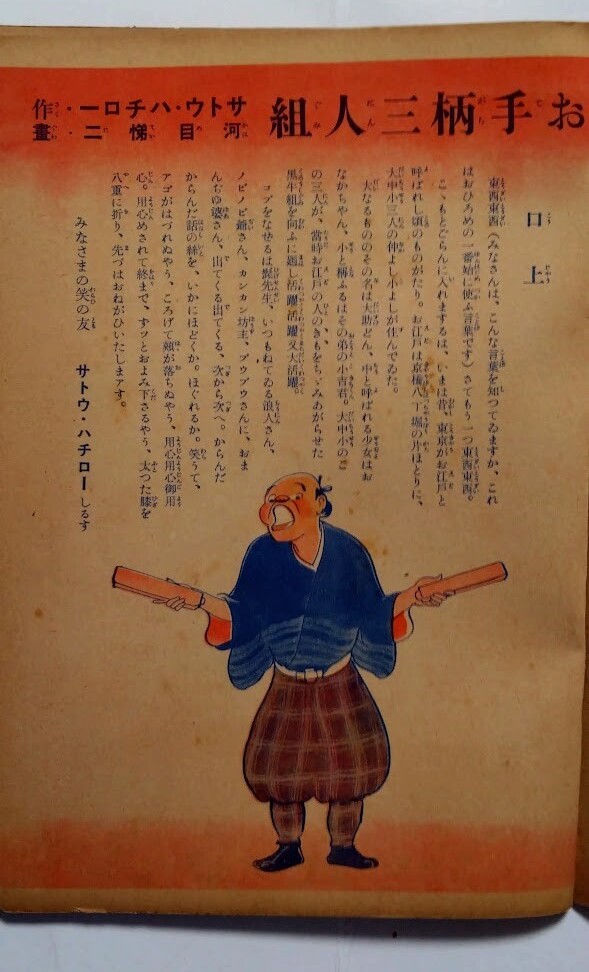 お手柄三人組
サトウ・ハチロー・作
河目悌二・畫
口上
東西東西（みなさんは、こんな言葉を知つてゐますか、これ
はおひろめの一番始に使ふ言葉です）さてもう一つ東西東西。
こゝもとごらんに入れまするは、いまは昔、東京がお江戸と
呼ばれし頃のものがたり。お江戸は京橋八丁堀の片ほとりに、
大中小三人の仲よし小よしが住んでゐた。
大なるもののその名は大助どん、中と呼ばれる少女はお
なかちやん、小と稱ふるはその弟の小吉君。大中小の
の三人が、當時お江戸の人のきもをちゞみあがらせた
黒牛組を向ふに廻し活躍活躍又大活躍。
コブをなせるは髭先生、いつもねてゐる浪人さん、
ノビノビ爺さん、カンカン坊主、ブウブウさんに、おま
んおゆ婆さん、出てくる出てくる、次から次へ。からんだ
からんだ話の絲を、いかにほどくか。ほぐれるか。笑うて、
アゴがはづれぬやう、ころげて頬が落ちぬやう、用心用心御用
心。用心めされて終まで、すツとおよみ下さるやう、太つた膝を
八重に折り、先づはおねがひいたしまアす。
みなさまの笑の友
サトウ・ハチローしるす